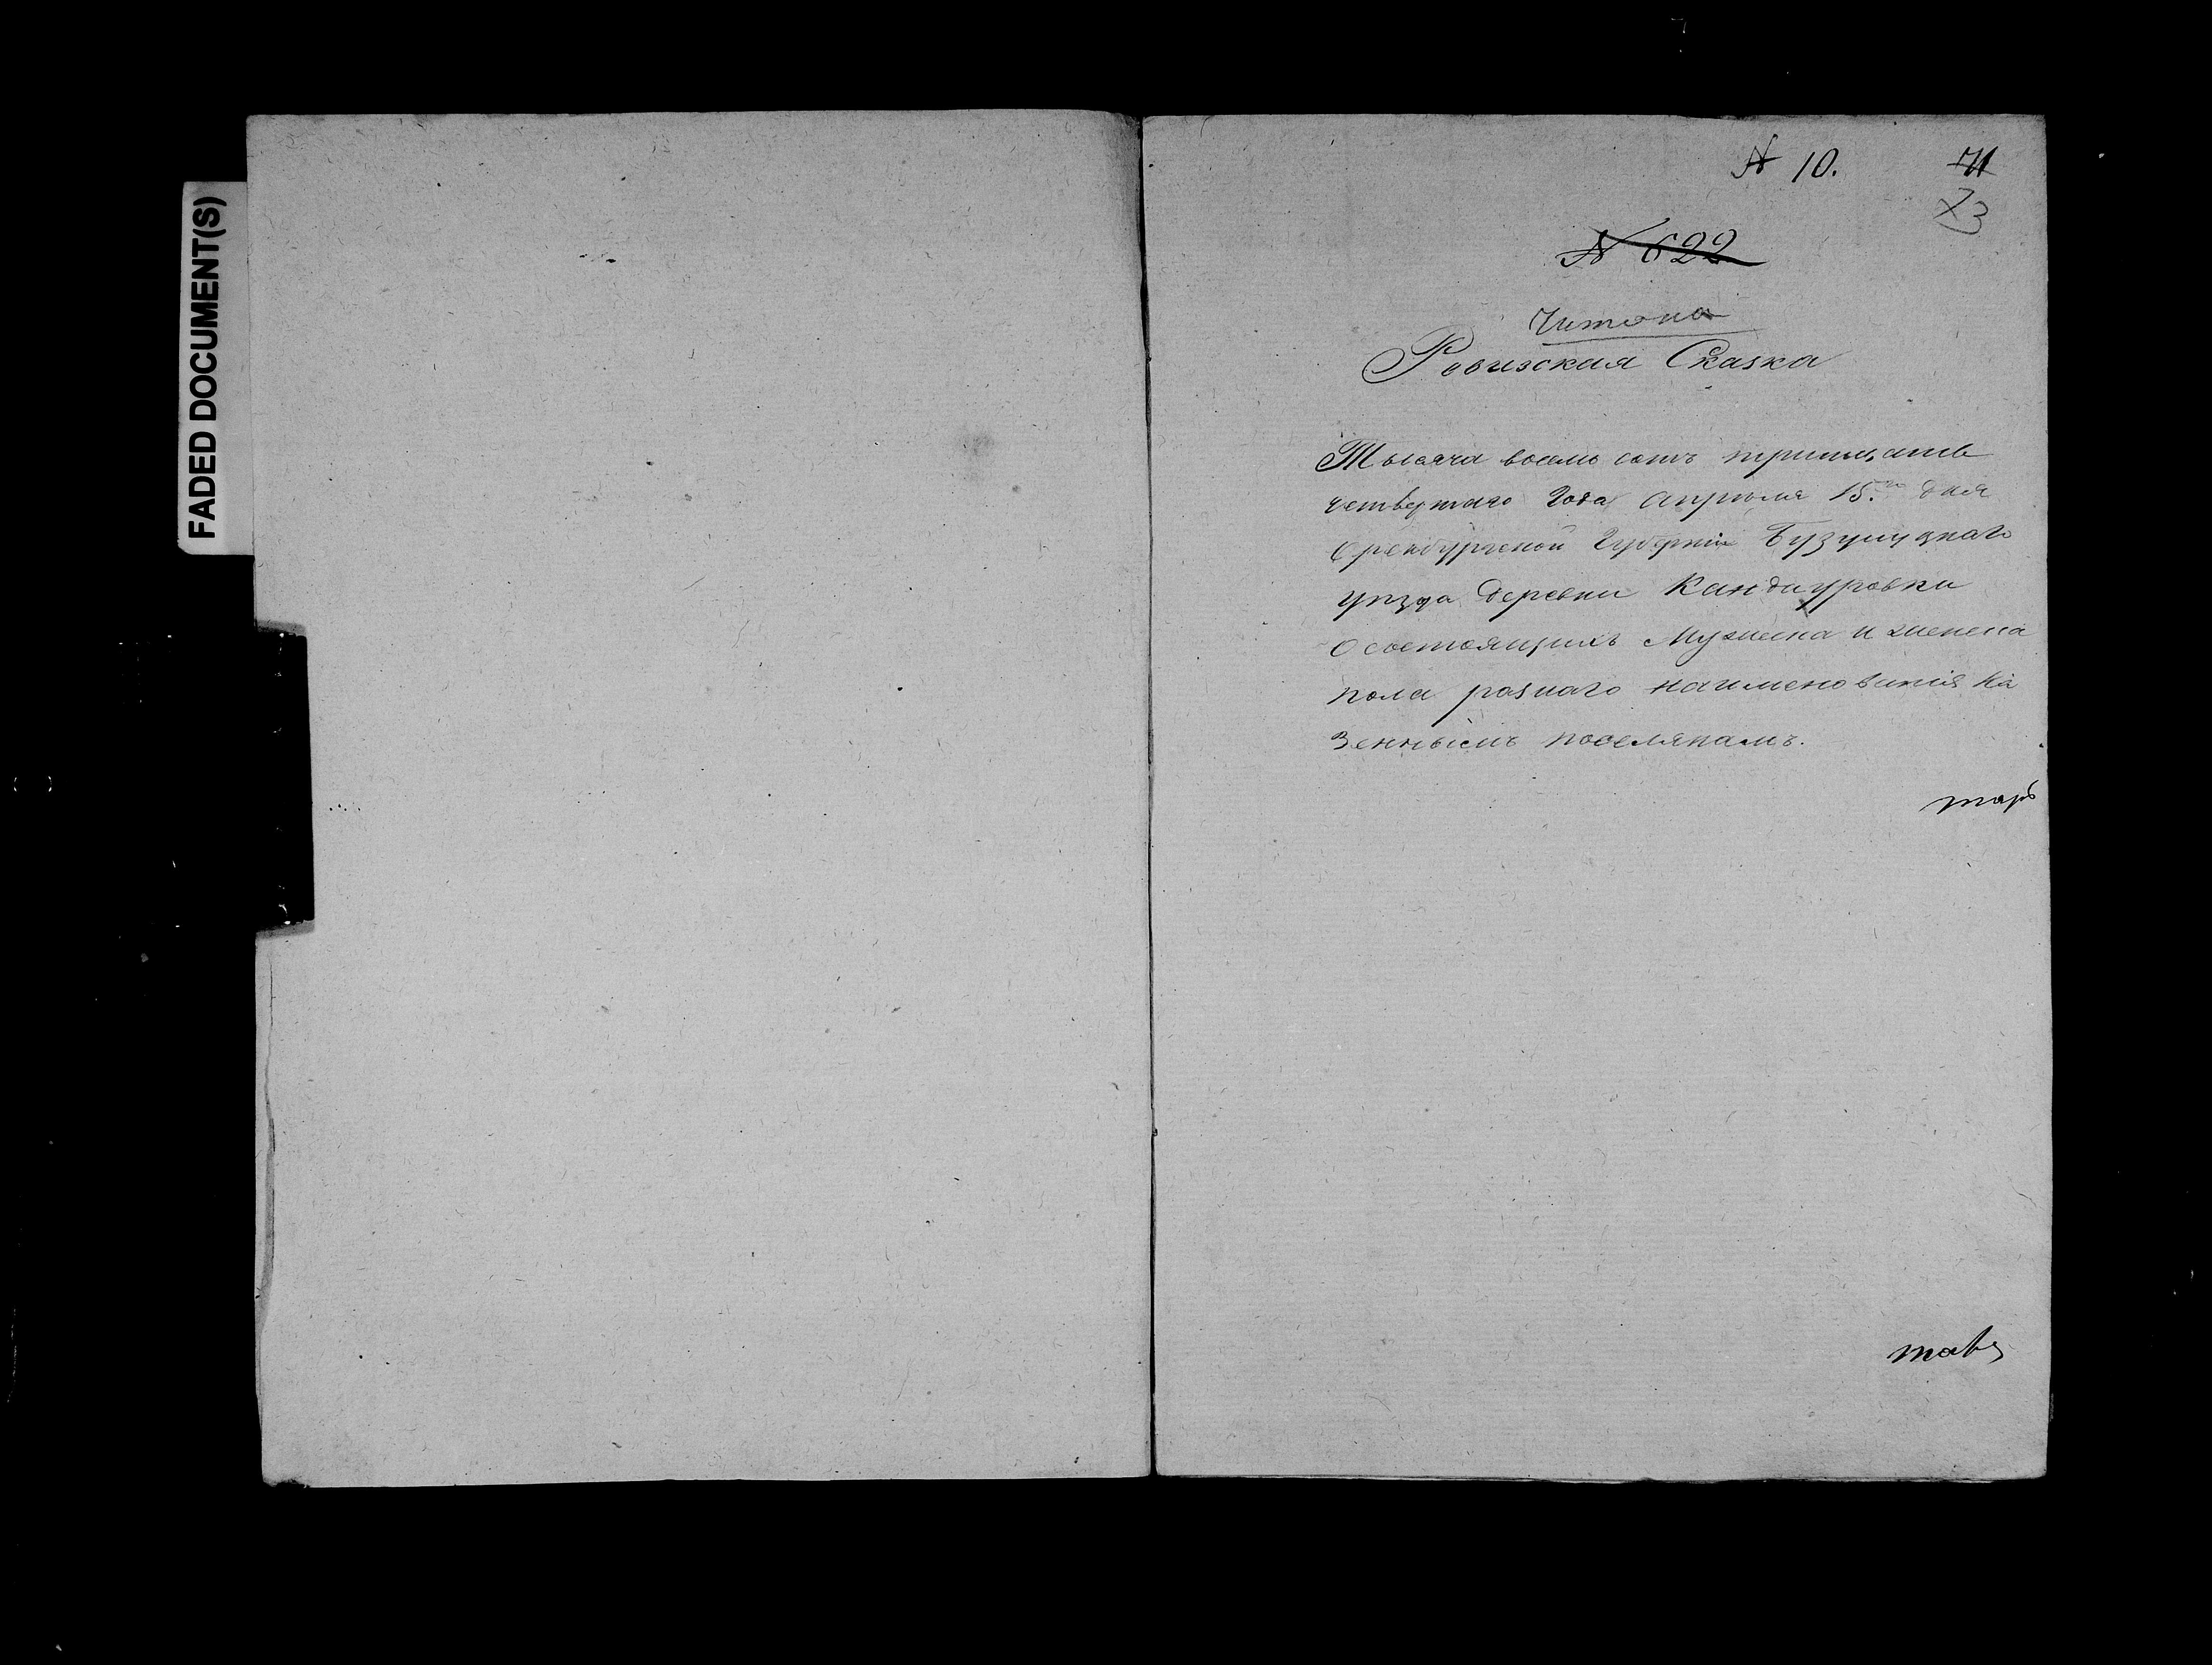 FADED DOCUMENT(S)
№ 10. 71
73
№ 622
Читана
Ревизская Сказка
Тысяча восемь сотъ тритцать
четвертаго Года апреля 15.го дня
Оренбургской Губернии Бузулуцкаго
уезда деревни Кандауровки
О состоящихъ Мужеска и женска
пола разнаго наименования Ка
зеннымъ поселянамъ.